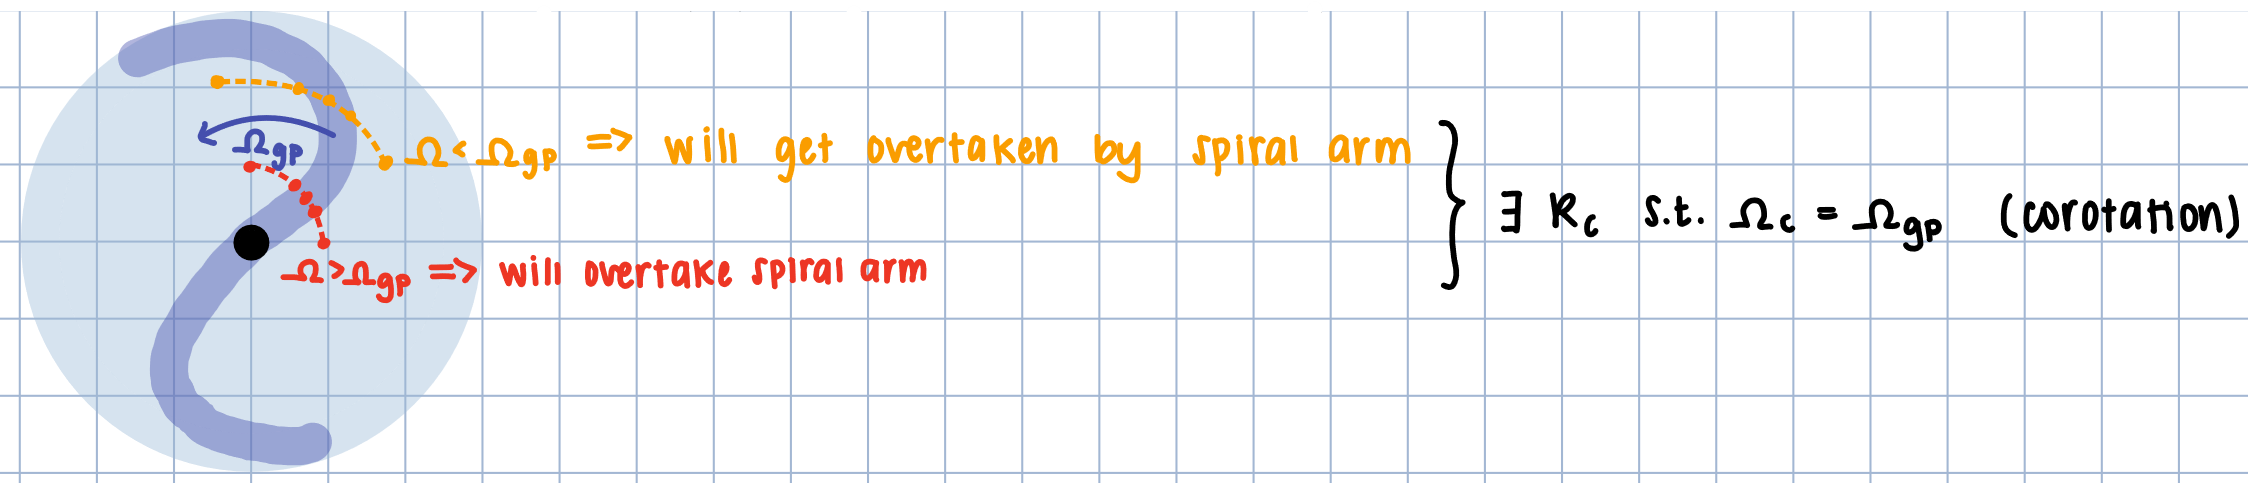 Ω_gp
Ω < Ω_gp => will get overtaken by spiral arm
Ω > Ω_gp => will overtake spiral arm
} ∃ R_c s.t. Ω_c = Ω_gp (corotation)